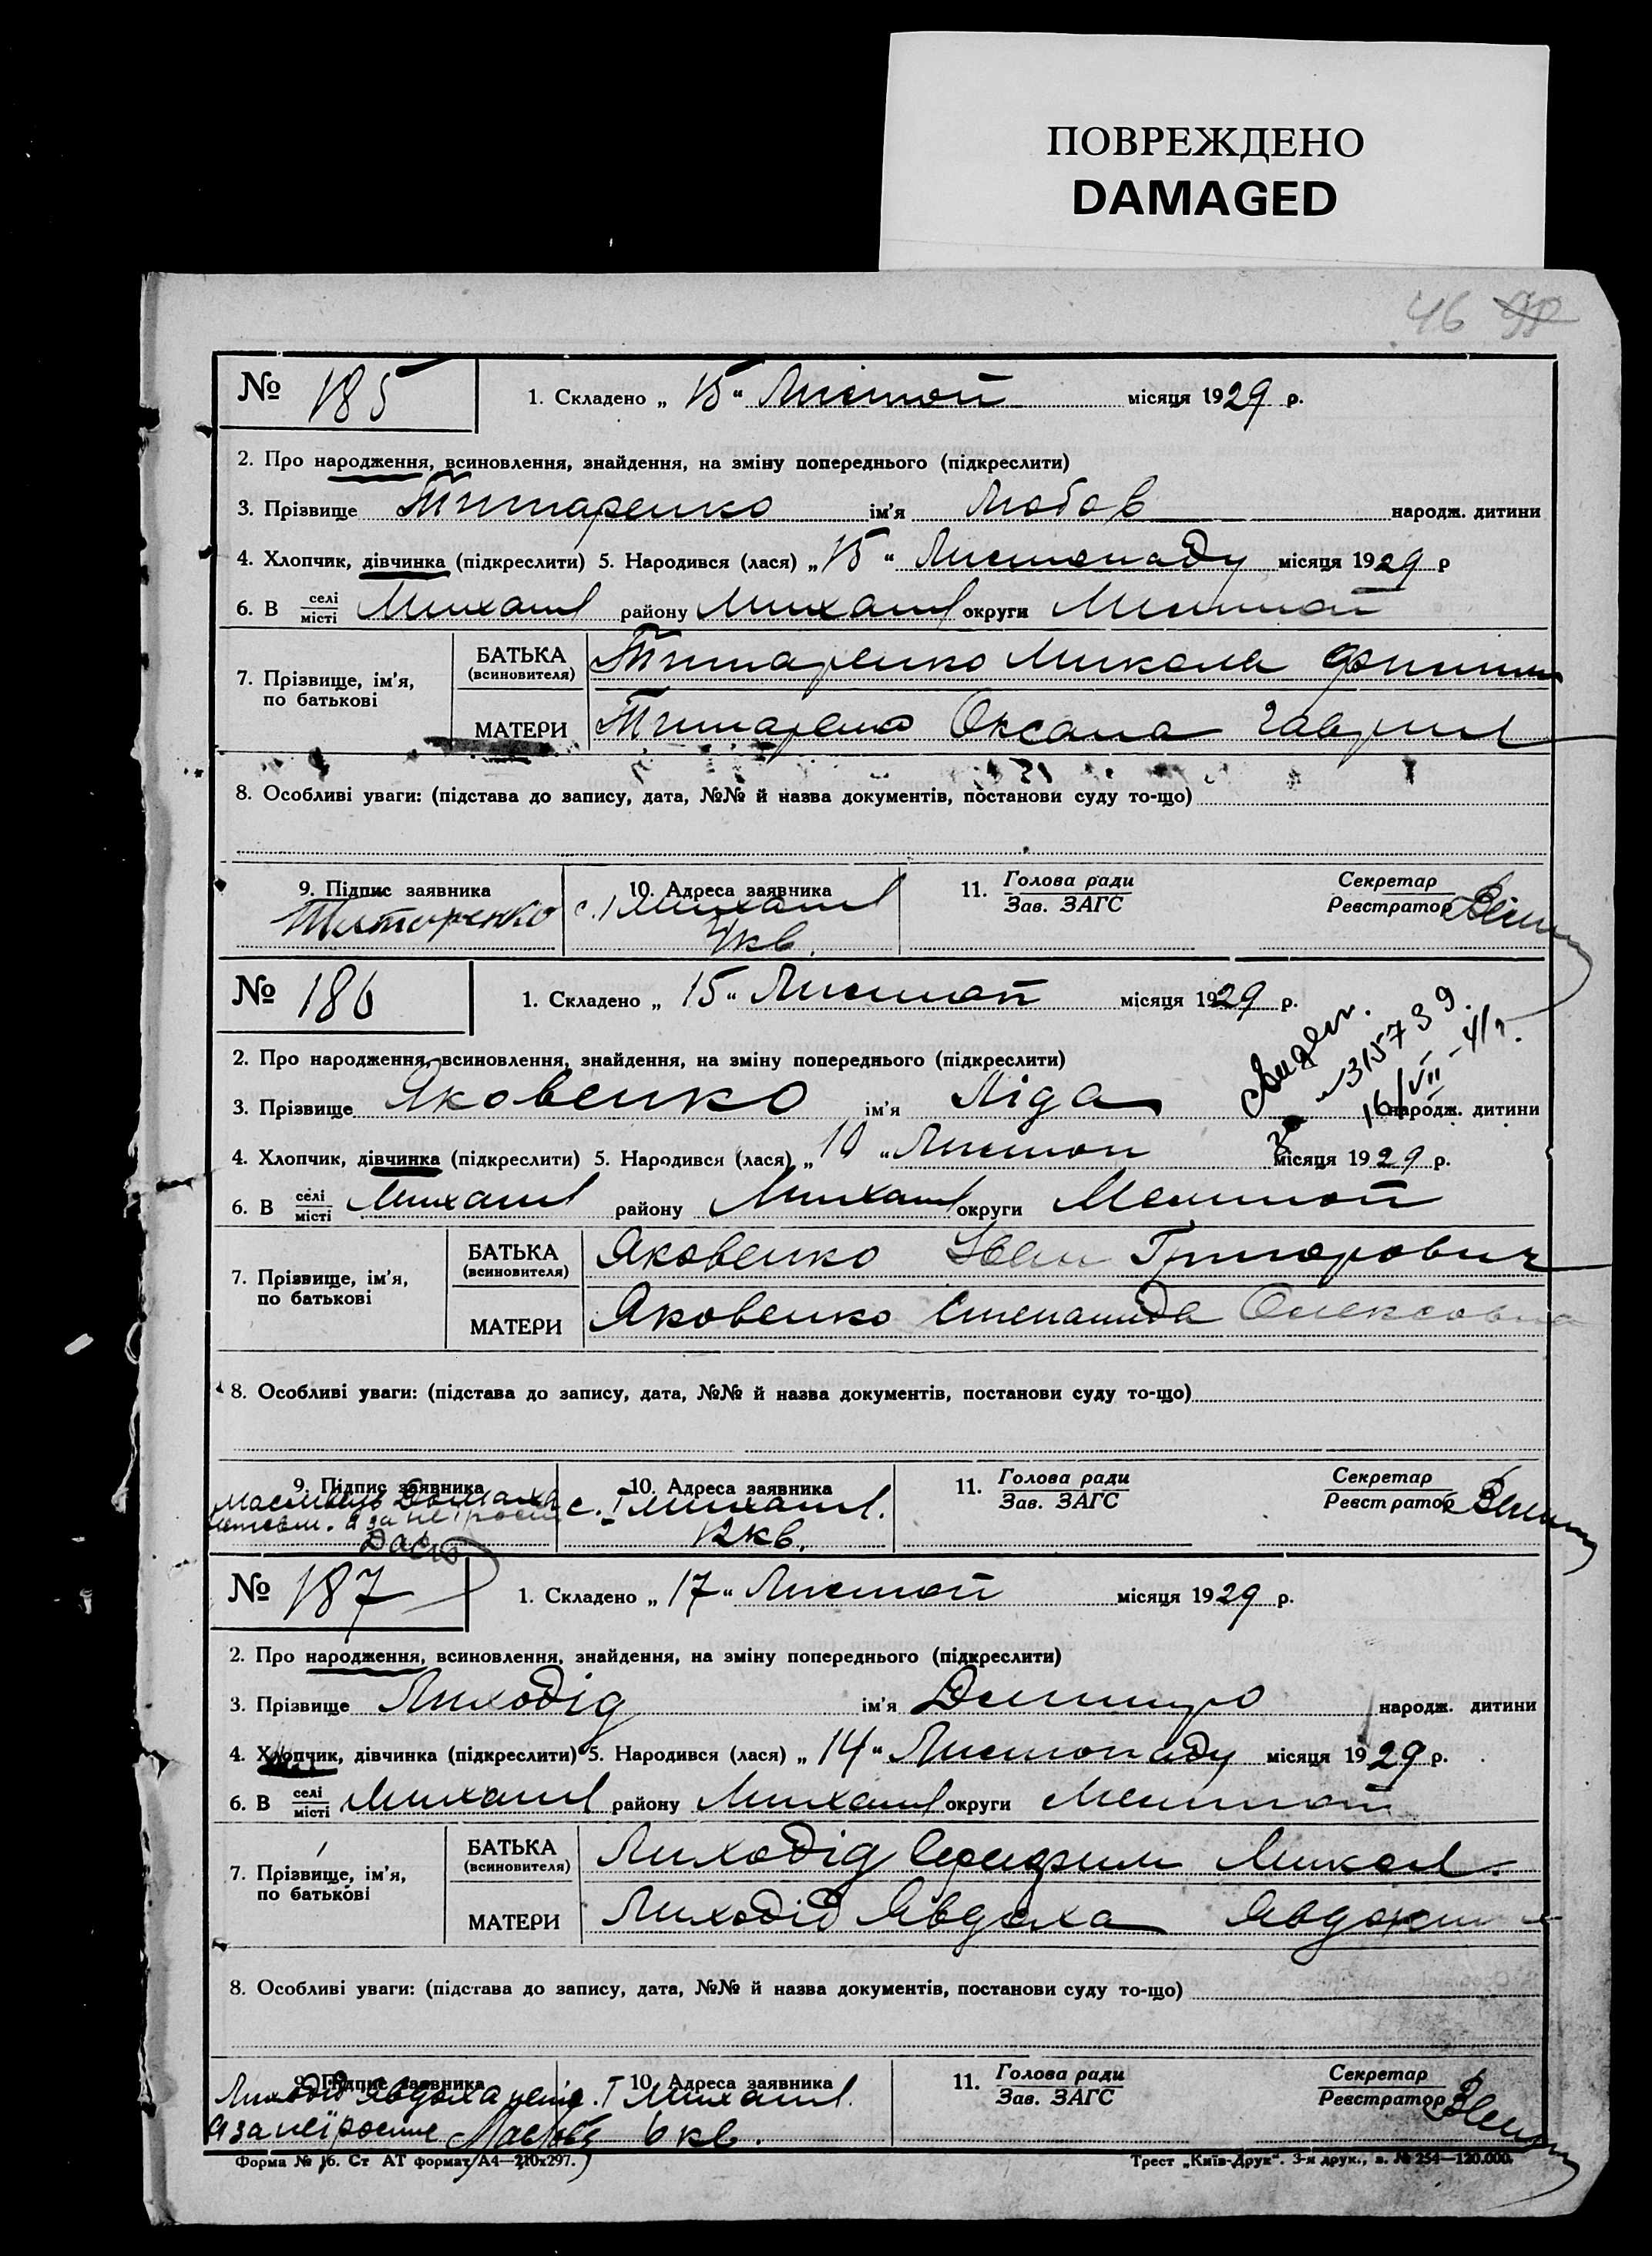 ПОВРЕЖДЕНО
DAMAGED
46
№ 185 1. Складено „ 15 “ Листоп місяця 1929 р.
2. Про народження, всиновлення, знайдення, на зміну попереднього (підкреслити)
3. Прізвище Титаренко ім'я Любов народж. дитини
4. Хлопчик, дівчинка (підкреслити) 5. Народився (лася) „ 15 “ Листопаду місяця 1929 р
6. В селі місті Михайл району Михайл округи Мелітоп
7. Прізвище, ім'я, по батькові
БАТЬКА (всиновителя) Титаренко Микола
МАТЕРИ Титаренко Оксана Гаврил
8. Особливі уваги: (підстава до запису, дата, №№ й назва документів, постанови суду то-що)
9. Підпис заявника 10. Адреса заявника 11. Голова ради Секретар
Зав. ЗАГС Реєстратор
Титоренко с. І Михайл
кв.
№ 186 1. Складено „ 15 “ Листоп місяця 1929 р.
Свидет. 315739
16/VII-41 г.
2. Про народження, всиновлення, знайдення, на зміну попереднього (підкреслити)
3. Прізвище Яковенко ім'я Ліда народж. дитини
4. Хлопчик, дівчинка (підкреслити) 5. Народився (лася) „ 10 “ Листоп місяця 1929 р.
6. В селі місті Михайл району Михайл округи Мелітоп
7. Прізвище, ім'я, по батькові
БАТЬКА (всиновителя) Яковенко Іван Григорович
МАТЕРИ Яковенко Степанида Олексовна
8. Особливі уваги: (підстава до запису, дата, №№ й назва документів, постанови суду то-що)
9. Підпис заявника 10. Адреса заявника 11. Голова ради Секретар
Зав. ЗАГС Реєстратор
с. І Михайл.
12 кв.
№ 187 1. Складено „ 17 “ Листоп місяця 1929 р.
2. Про народження, всиновлення, знайдення, на зміну попереднього (підкреслити)
3. Прізвище Лиходід ім'я Дмитро народж. дитини
4. Хлопчик, дівчинка (підкреслити) 5. Народився (лася) „ 14 “ Листопаду місяця 1929 р.
6. В селі місті Михайл району Михайл округи Мелітоп
7. Прізвище, ім'я, по батькові
БАТЬКА (всиновителя) Лиходід Микол.
МАТЕРИ Лиходід Явдоха
8. Особливі уваги: (підстава до запису, дата, №№ й назва документів, постанови суду то-що)
9. Підпис заявника 10. Адреса заявника 11. Голова ради Секретар
Зав. ЗАГС Реєстратор
Лиходід Явдоха І Михайл.
6 кв.
Форма № 16. Ст АТ формат А4—210х297. Трест „Київ-Друк“. 3-я друк., з. № 254—120.000.